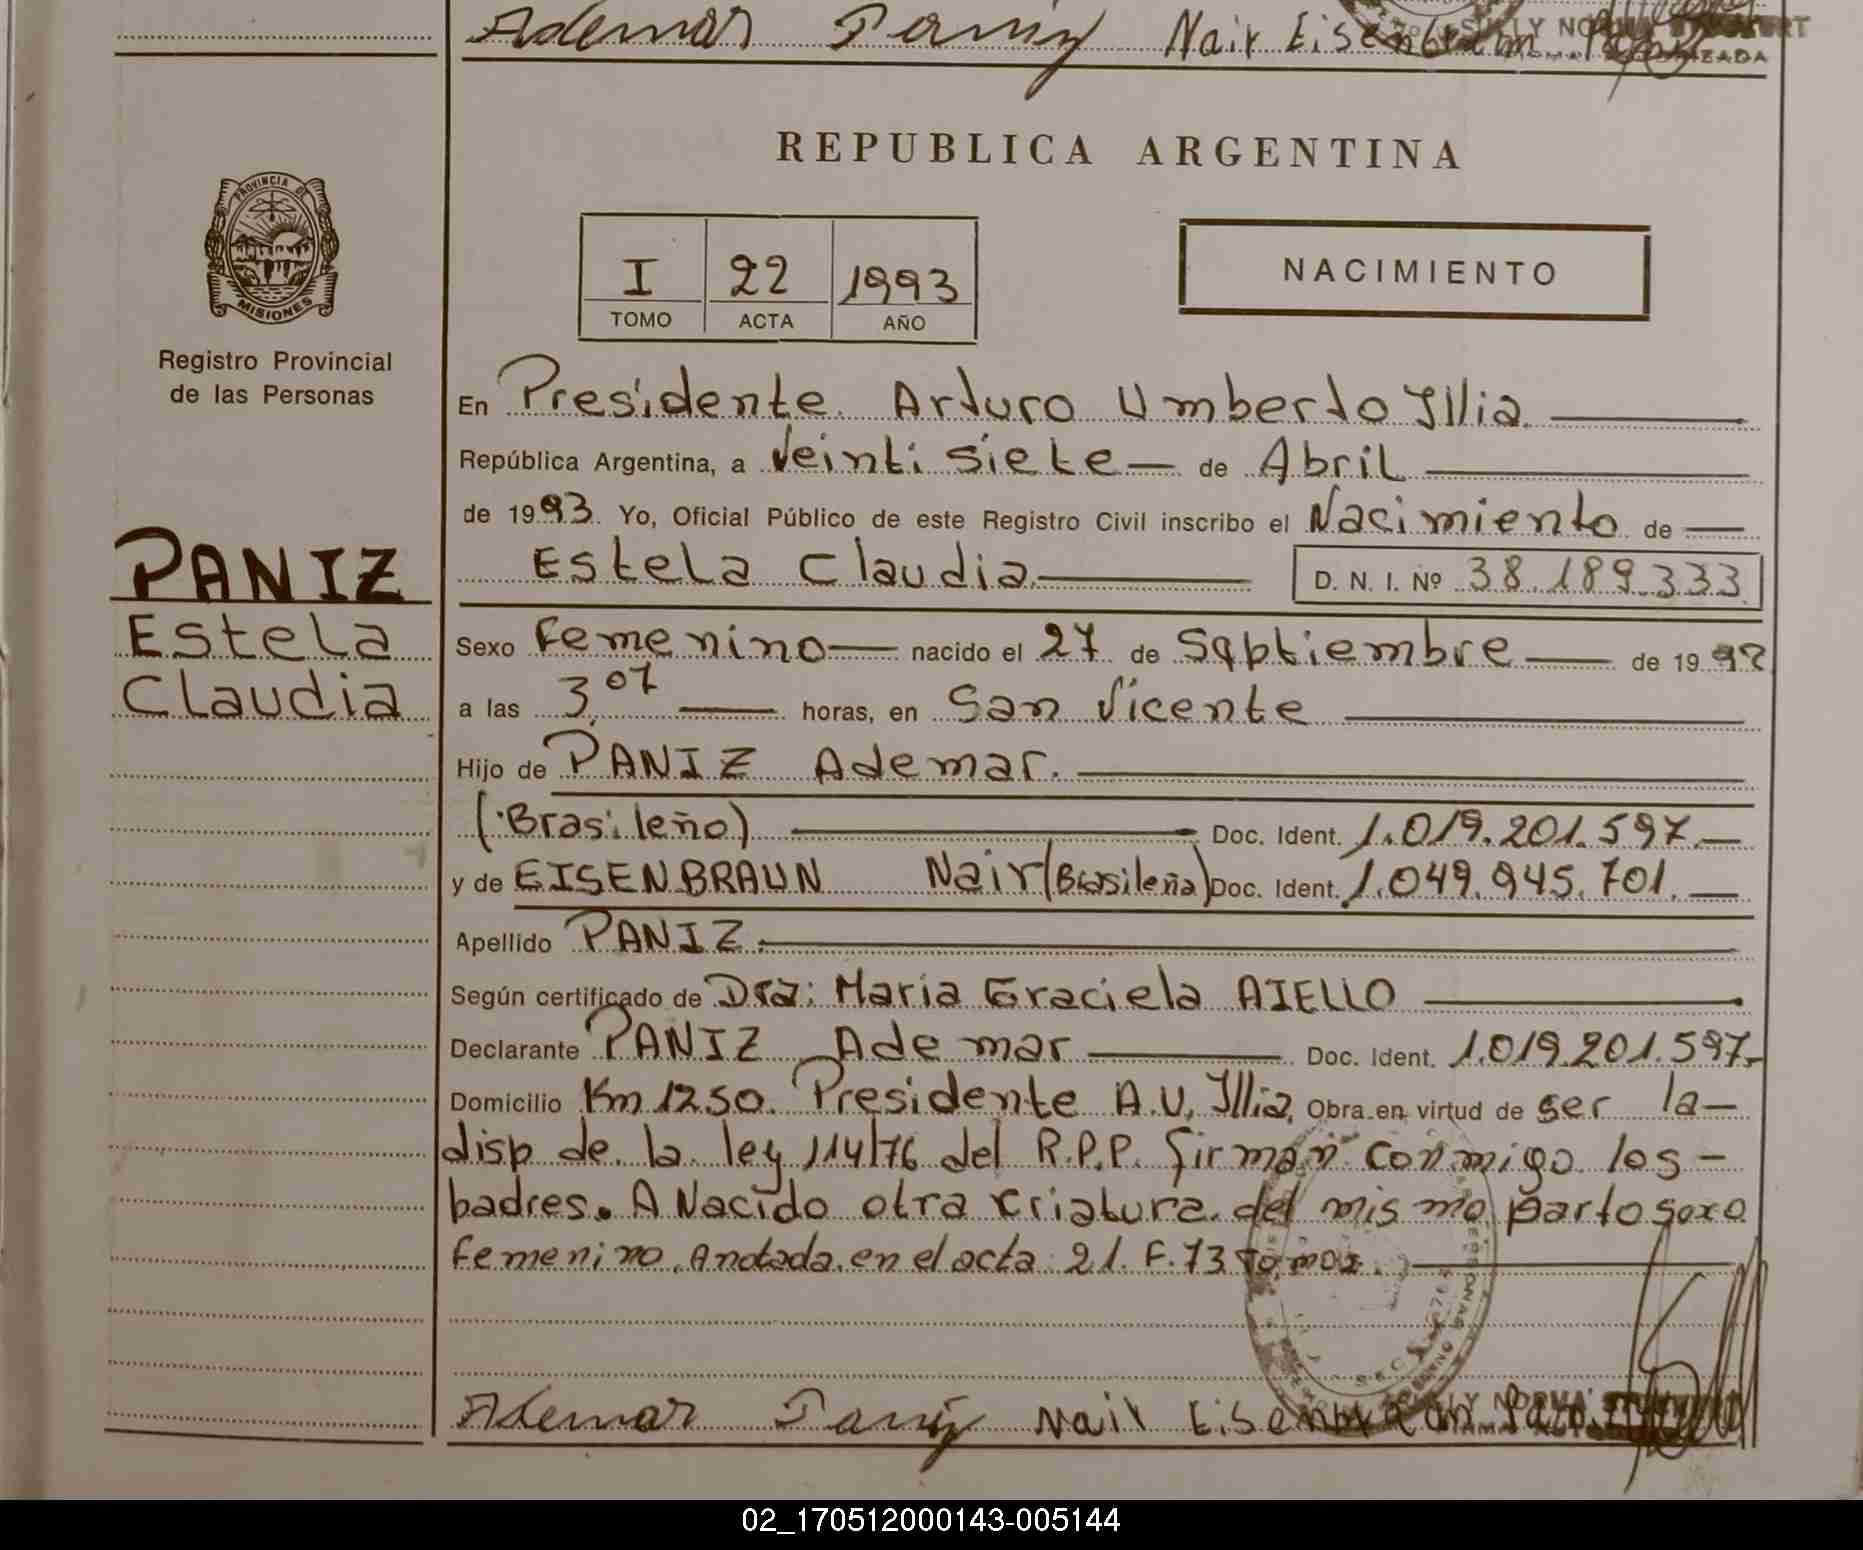 Ademar Paniz Nair Eisenbraun
REPUBLICA ARGENTINA
PROVINCIA DE
MISIONES
Registro Provincial
de las Personas
I 22 1993
TOMO ACTA AÑO
NACIMIENTO
En Presidente Arturo Umberto Illia
República Argentina, a Veinti siete de Abril
de 1993 Yo, Oficial Público de este Registro Civil inscribo el Nacimiento de
Estela Claudia D. N. I. Nº 38.189.333
PANIZ
Estela
Claudia
Sexo Femenino nacido el 27 de Septiembre de 1992
a las 3,07 horas, en San Vicente
Hijo de PANIZ Ademar.
(Brasileño) Doc. Ident. 1.019.201.597.—
y de EISENBRAUN Nair (Brasileña) Doc. Ident. 1.049.945.701.—
Apellido PANIZ.
Según certificado de Dra: Maria Graciela AIELLO
Declarante PANIZ Ademar Doc. Ident. 1.019.201.597-
Domicilio Km 1250. Presidente A.U. Illia, Obra en virtud de ser la—
disp de la ley 114/76 del R.P.P. firman conmigo los -
padres. A Nacido otra criatura del mismo parto sexo
femenino. Anotada en el acta 21. F. 73 Tomo I.
Ademar Paniz Nair Eisenbraun
02_170512000143-005144